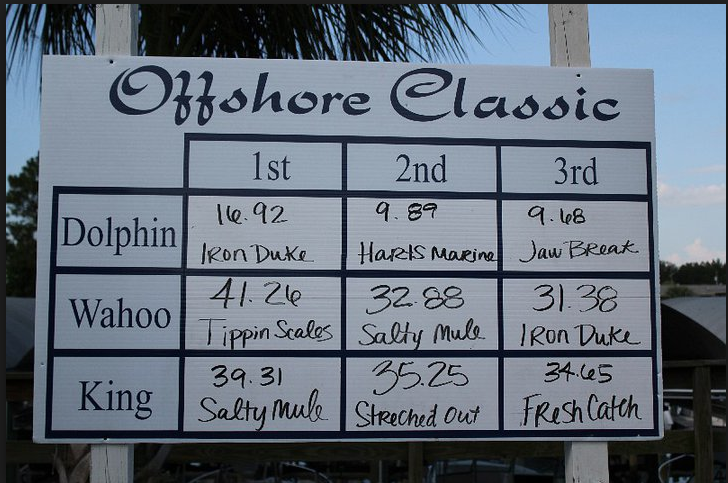 Offshore Classic
1st 2nd 3rd
Dolphin 16.92 9.89 9.68
Iron Duke Harts Marine Jaw Break
Wahoo 41.26 32.88 31.38
Tippin Scales Salty Mule Iron Duke
King 39.31 35.25 34.65
Salty Mule Streched Out Fresh Catch